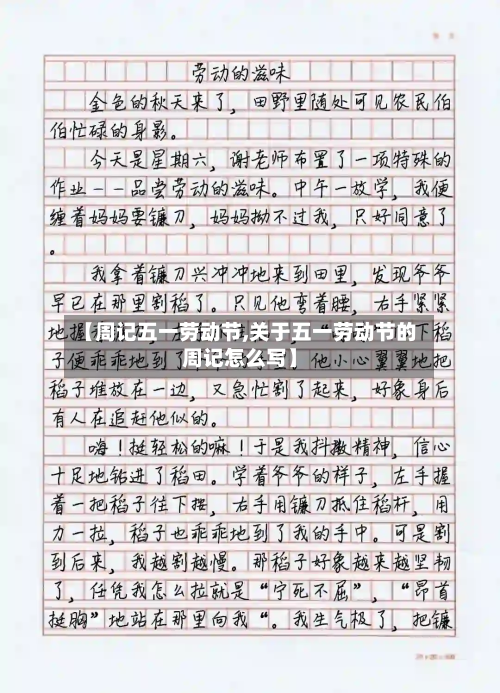 劳动的滋味
金色的秋天来了，田野里随处可见农民伯
伯忙碌的身影。
今天是星期六，谢老师布置了一项特殊的
作业——品尝劳动的滋味。中午一放学，我便
缠着妈妈要镰刀，妈妈拗不过我，只好同意了
。
我拿着镰刀兴冲冲地来到田里，发现爷爷
早已在那里割稻了。只见他弯着腰，右手紧紧
地握
【周记五一劳动节,关于五一劳动节的
周记怎么写】
子便乖乖地到了 他小心翼翼地把
稻子堆放在一边，又急忙割了起来，好象身后
有人在追赶他似的。
嗨！挺轻松的嘛！于是我抖擞精神，信心
十足地钻进了稻田。学着爷爷的样子，左手握
着一把稻子往下摆，右手用镰刀抵住稻杆，用
力一拉，稻子也乖乖地到了我的手中。可是割
到后来，我越割越慢。那稻子好象越来越坚韧
了，任凭我怎么拉就是“宁死不屈”，“昂首
挺胸”地站在那里向我“。我生气极了，把镰